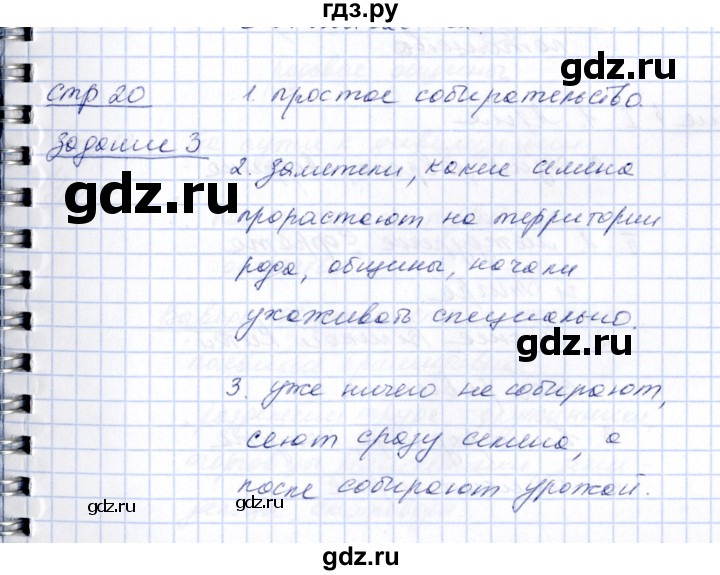 гдз.ру
стр 20
задание 3
1. простое собирательство.
2. заметели, какие семена
прорастают на территории
рода, общины, начали
ухаживать специально.
3. уже ничего не собирают,
сеют сразу семена, а
после собирают урожай.
gdz.ru
gdz.ru
gdz.ru
gdz.ru
gdz.ru